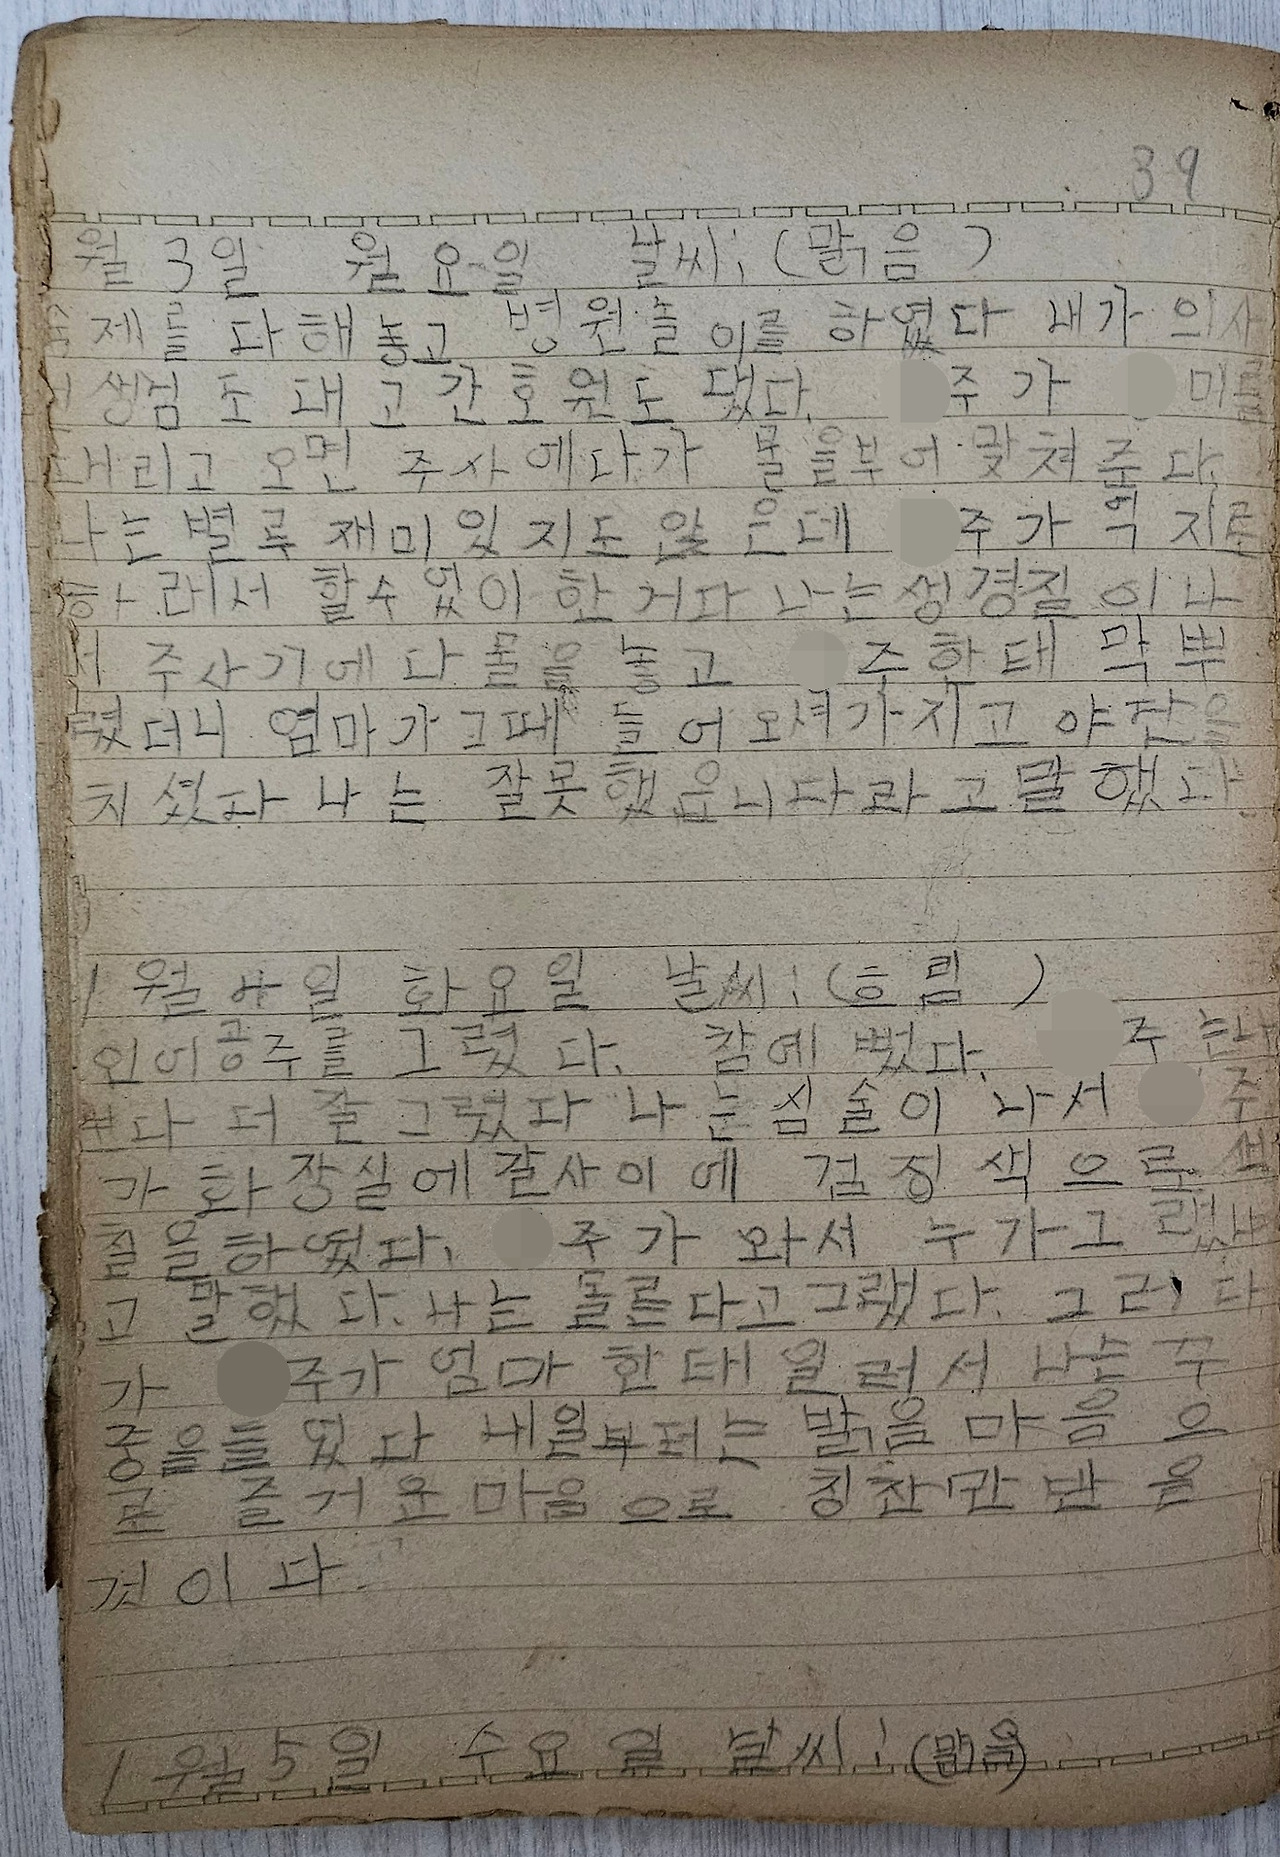 39
월 3일 월요일 날씨:(맑음 )
제를 다해놓고 병원놀이를 하였다 내가 의사
생님도 대고 간호원도 됐다. 주가 미를
데리고 오면 주사에다가 물을부어 맞쳐준다.
나는 별루 재미있지도 않은데 주가 억지로
하래서 할수없이 한거다 나는 성경질이나
서 주사기에다 물을 놓고 주한태 막뿌
렸더니 엄마가그때 들어오셔가지고 야단을
치셨다 나는 잘못했읍니다라고말했다
1월 4일 화요일 날씨:(흐림 )
인어공주를 그렸다. 참예뻤다. 주한테
보다 더 잘그렸다 나는심술이 나서 주
가 화장실에갈사이에 검정색으로 색
칠을하였다. 주가 와서 누가그렸냐
고 말했다.나는 몰른다고그랬다. 그러다
가 주가 엄마한태 일러서 나는 꾸
중을들었다 내일부터는 밝음 마음으
로 즐거운마음으로 칭찬만받을
것이다.
1월5일 수요일 날씨:(맑음)